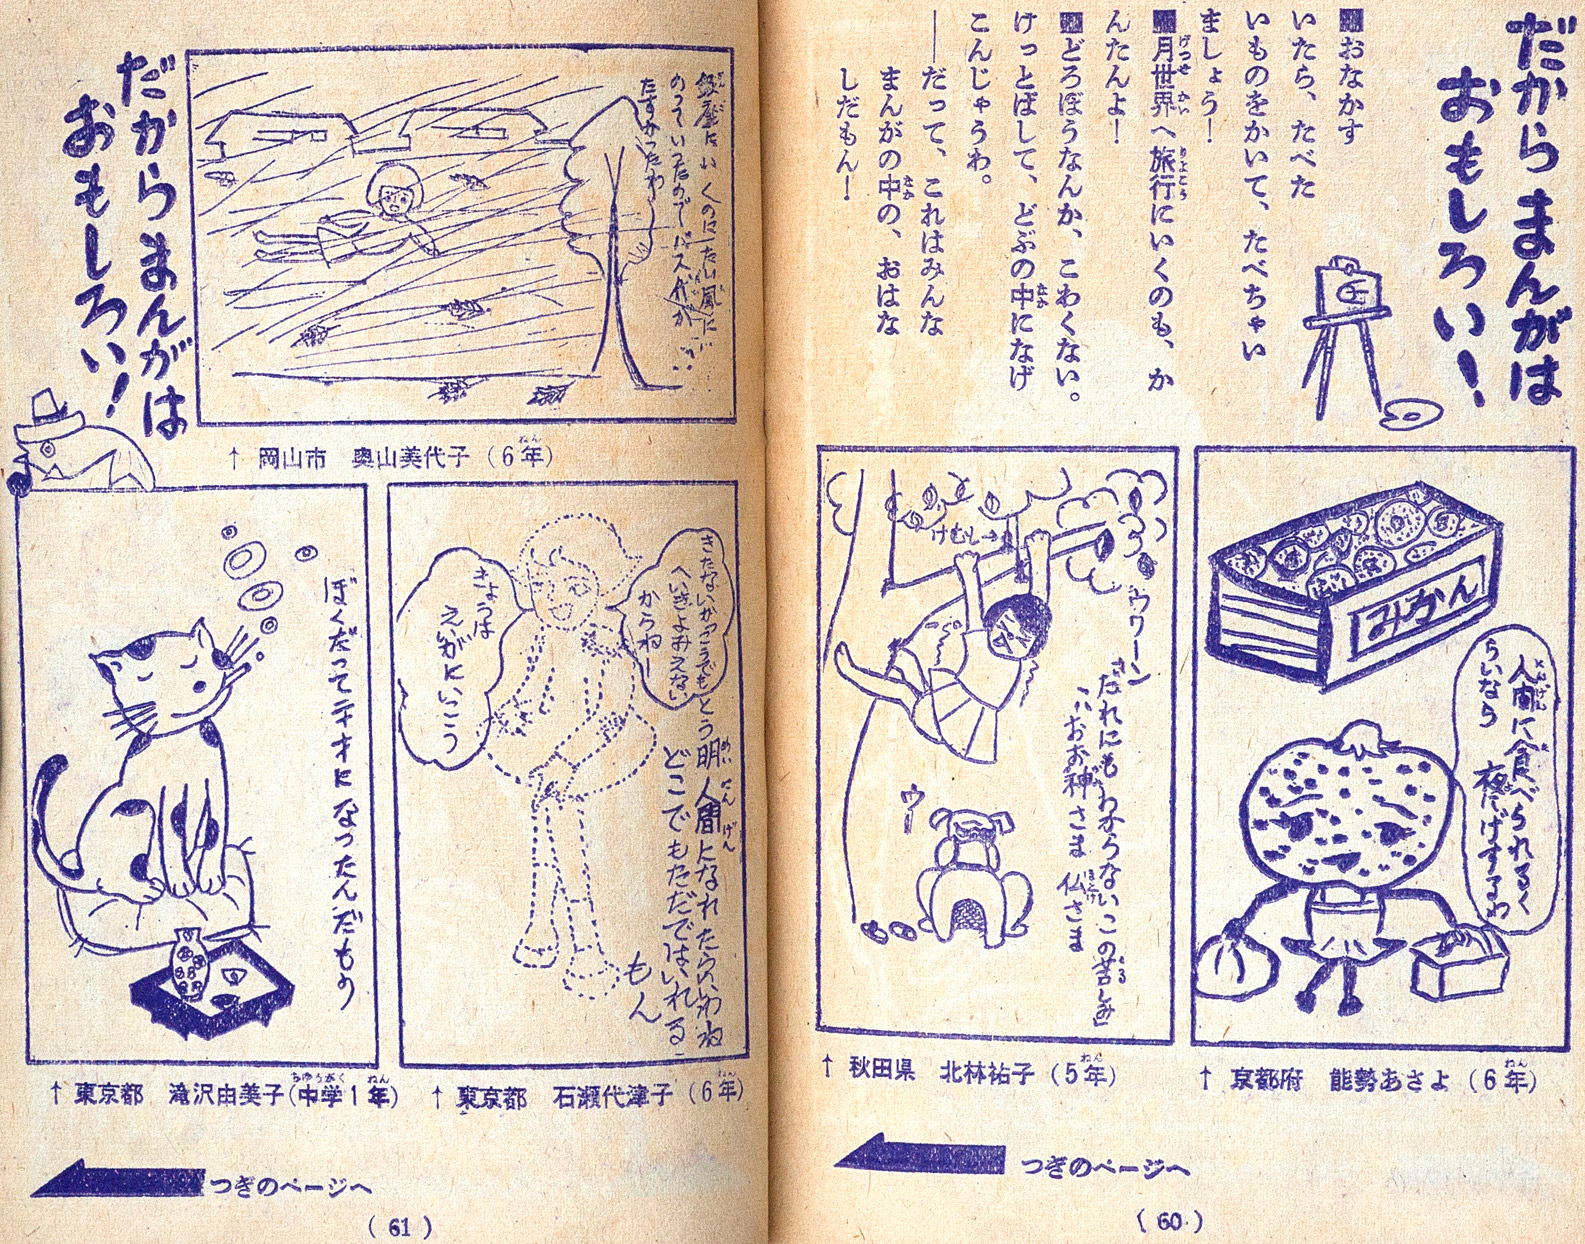 だからまんがは
おもしろい!
■おなかす
いたら、たべた
いものをかいて、たべちゃい
ましょう!
■月世界へ旅行にいくのも、か
んたんよ!
■どろぼうなんか、こわくない。
けっとばして、どぶの中になげ
こんじゃうわ。
――だって、これはみんな
まんがの中の、おはな
しだもん!
みかん
人間に食べられるく
らいなら 夜にげするわ
↑京都府 能勢あさよ(6年)
けむし→
ウワーン
だれにもわからないこの苦しみ
おお神さま 仏さま
ウー
↑秋田県 北林祐子(5年)
つぎのページへ
(60)
銀座にいくのにたい風に
のっていったのでバス代が
たすかったわ
↑岡山市 奥山美代子(6年)
だからまんがは
おもしろい!
きたないかっこうでも
へいきよみえない
からねー
きょうは
えがにいこう
とう明人間になれたらいいわね
どこでもただではいれる
もん
↑東京都 石瀬代津子(6年)
ぼくだってテキになったんだもの
↑東京都 滝沢由美子(中学1年)
つぎのページへ
(61)